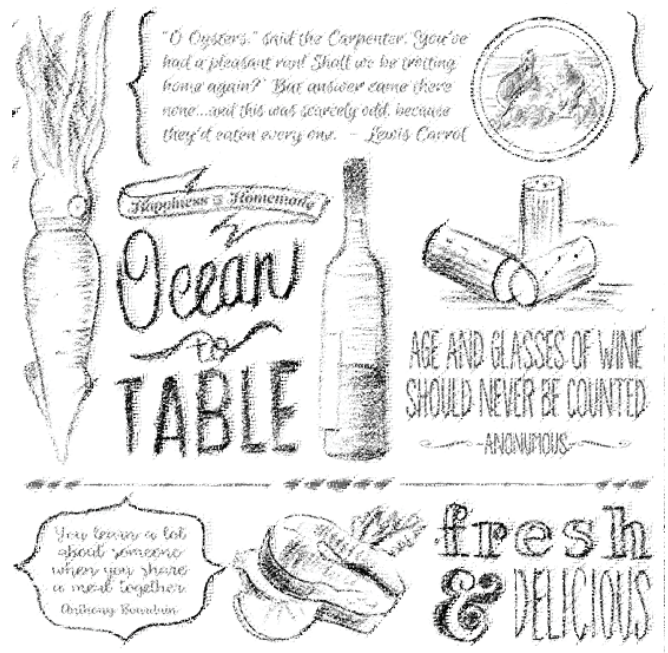 "O Oysters," said the Carpenter. You've
had a pleasant run! Shall we be trotting
home again?" But answer came there
none...and this was scarcely odd, because
they'd eaten every one. – Lewis Carrol
Happiness is Homemade
Ocean
to
TABLE
AGE AND GLASSES OF WINE
SHOULD NEVER BE COUNTED
-ANONUMOUS-
You learn a lot
about someone
when you share
a meal together.
Anthony Bourdain
fresh
& DELICIOUS